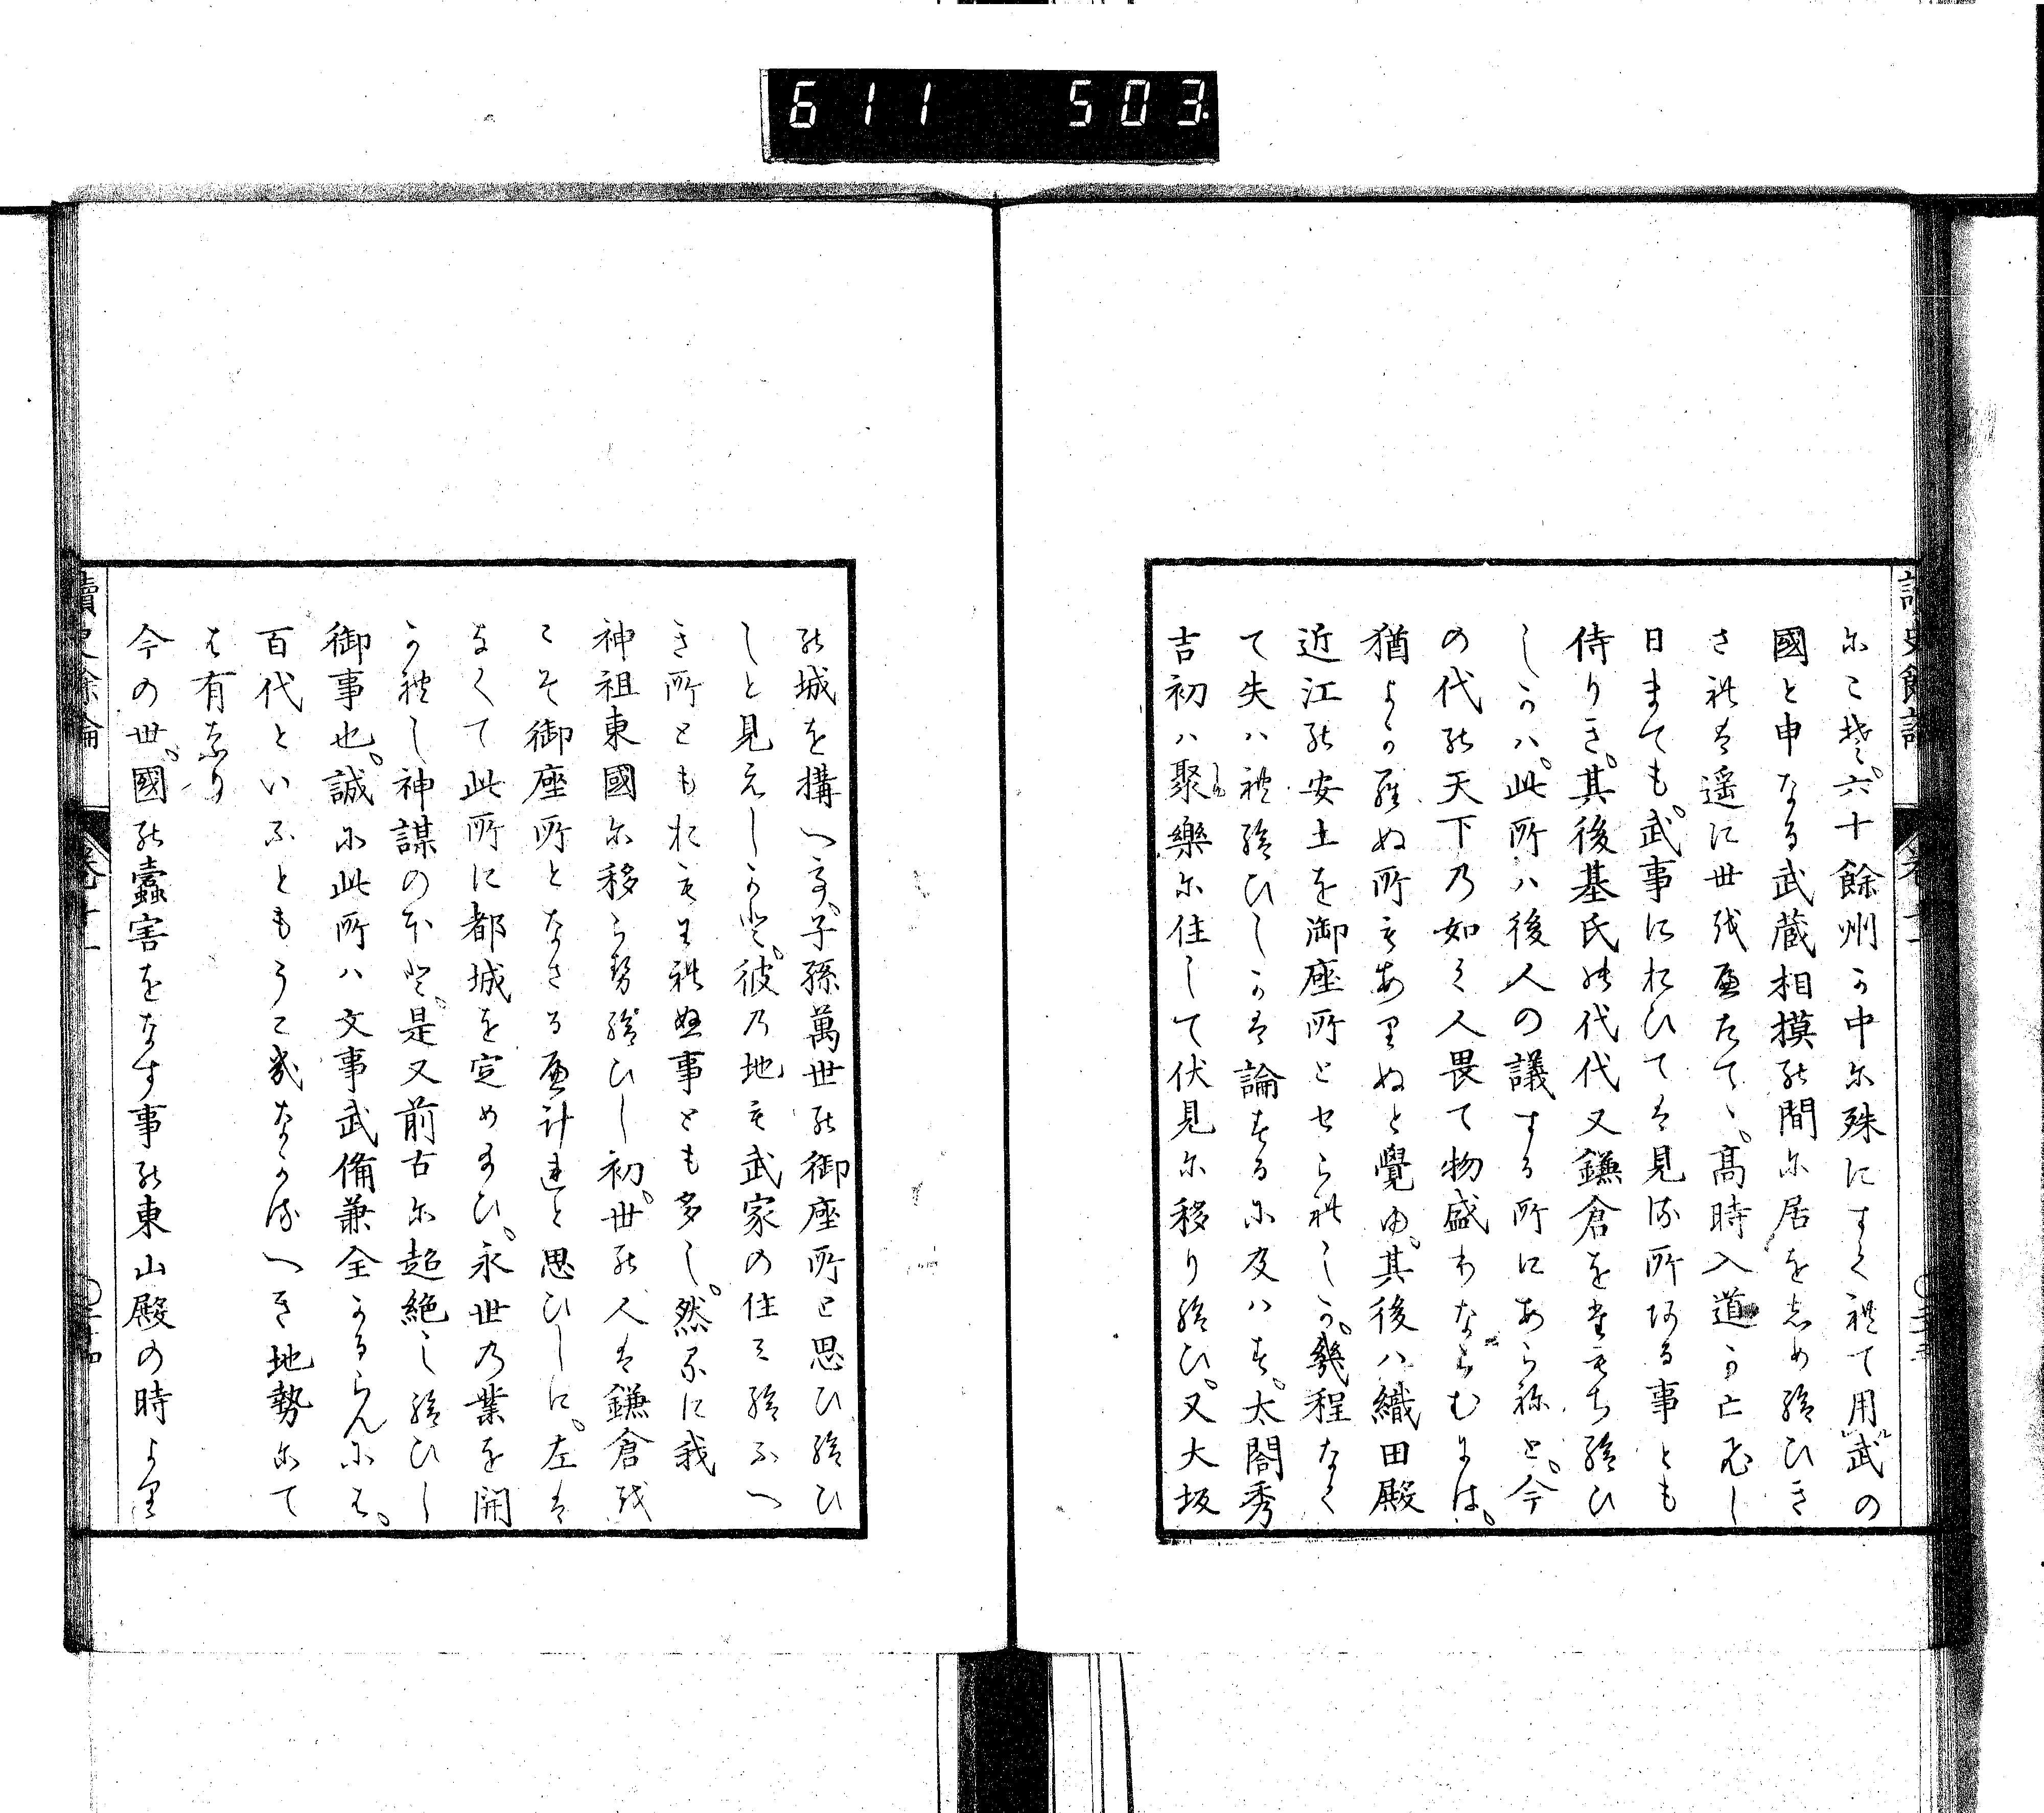 611 503
讀史餘論 卷十一
にこそ。六十餘州か中に殊にすくれて用武の
國と申なる武蔵相模の間に居をしめ給ひき
されは遥に世をへたて、高時入道か亡ひし
日まても。武事においては見る所ある事とも
侍りき。其後基氏の代代又鎌倉をたもち給ひ
しかハ。此所ハ後人の議する所にあらねと。今
の代の天下の如く人畏て物盛りならむには。
猶よからぬ所もありぬと覺ゆ。其後ハ織田殿
近江の安土を御座所とせられしか。幾程なく
て失ハれ給ひしかは論するに及ハす。太閤秀
吉初ハ聚樂に住して伏見に移り給ひ。又大坂
の城を搆へて。子孫萬世の御座所と思ひ給ひ
しと見えしかと。彼の地も武家の住み給ふへ
き所ともおもはれぬ事とも多し。然るに我
神祖東國に移らせ給ひし初。世の人は鎌倉を
こそ御座所となさるへけれと思ひしに。左は
なくて此所に都城を定め給ひ。永世の業を開
かれし神謀のほと。是又前古に超絶し給ひし
御事也。誠に此所ハ文事武備兼全かるらんには。
百代といふともうこきなかるへき地勢にて
は有なり
今の世。國の蠹害をなす事の東山殿の時より
讀史餘論 卷十一